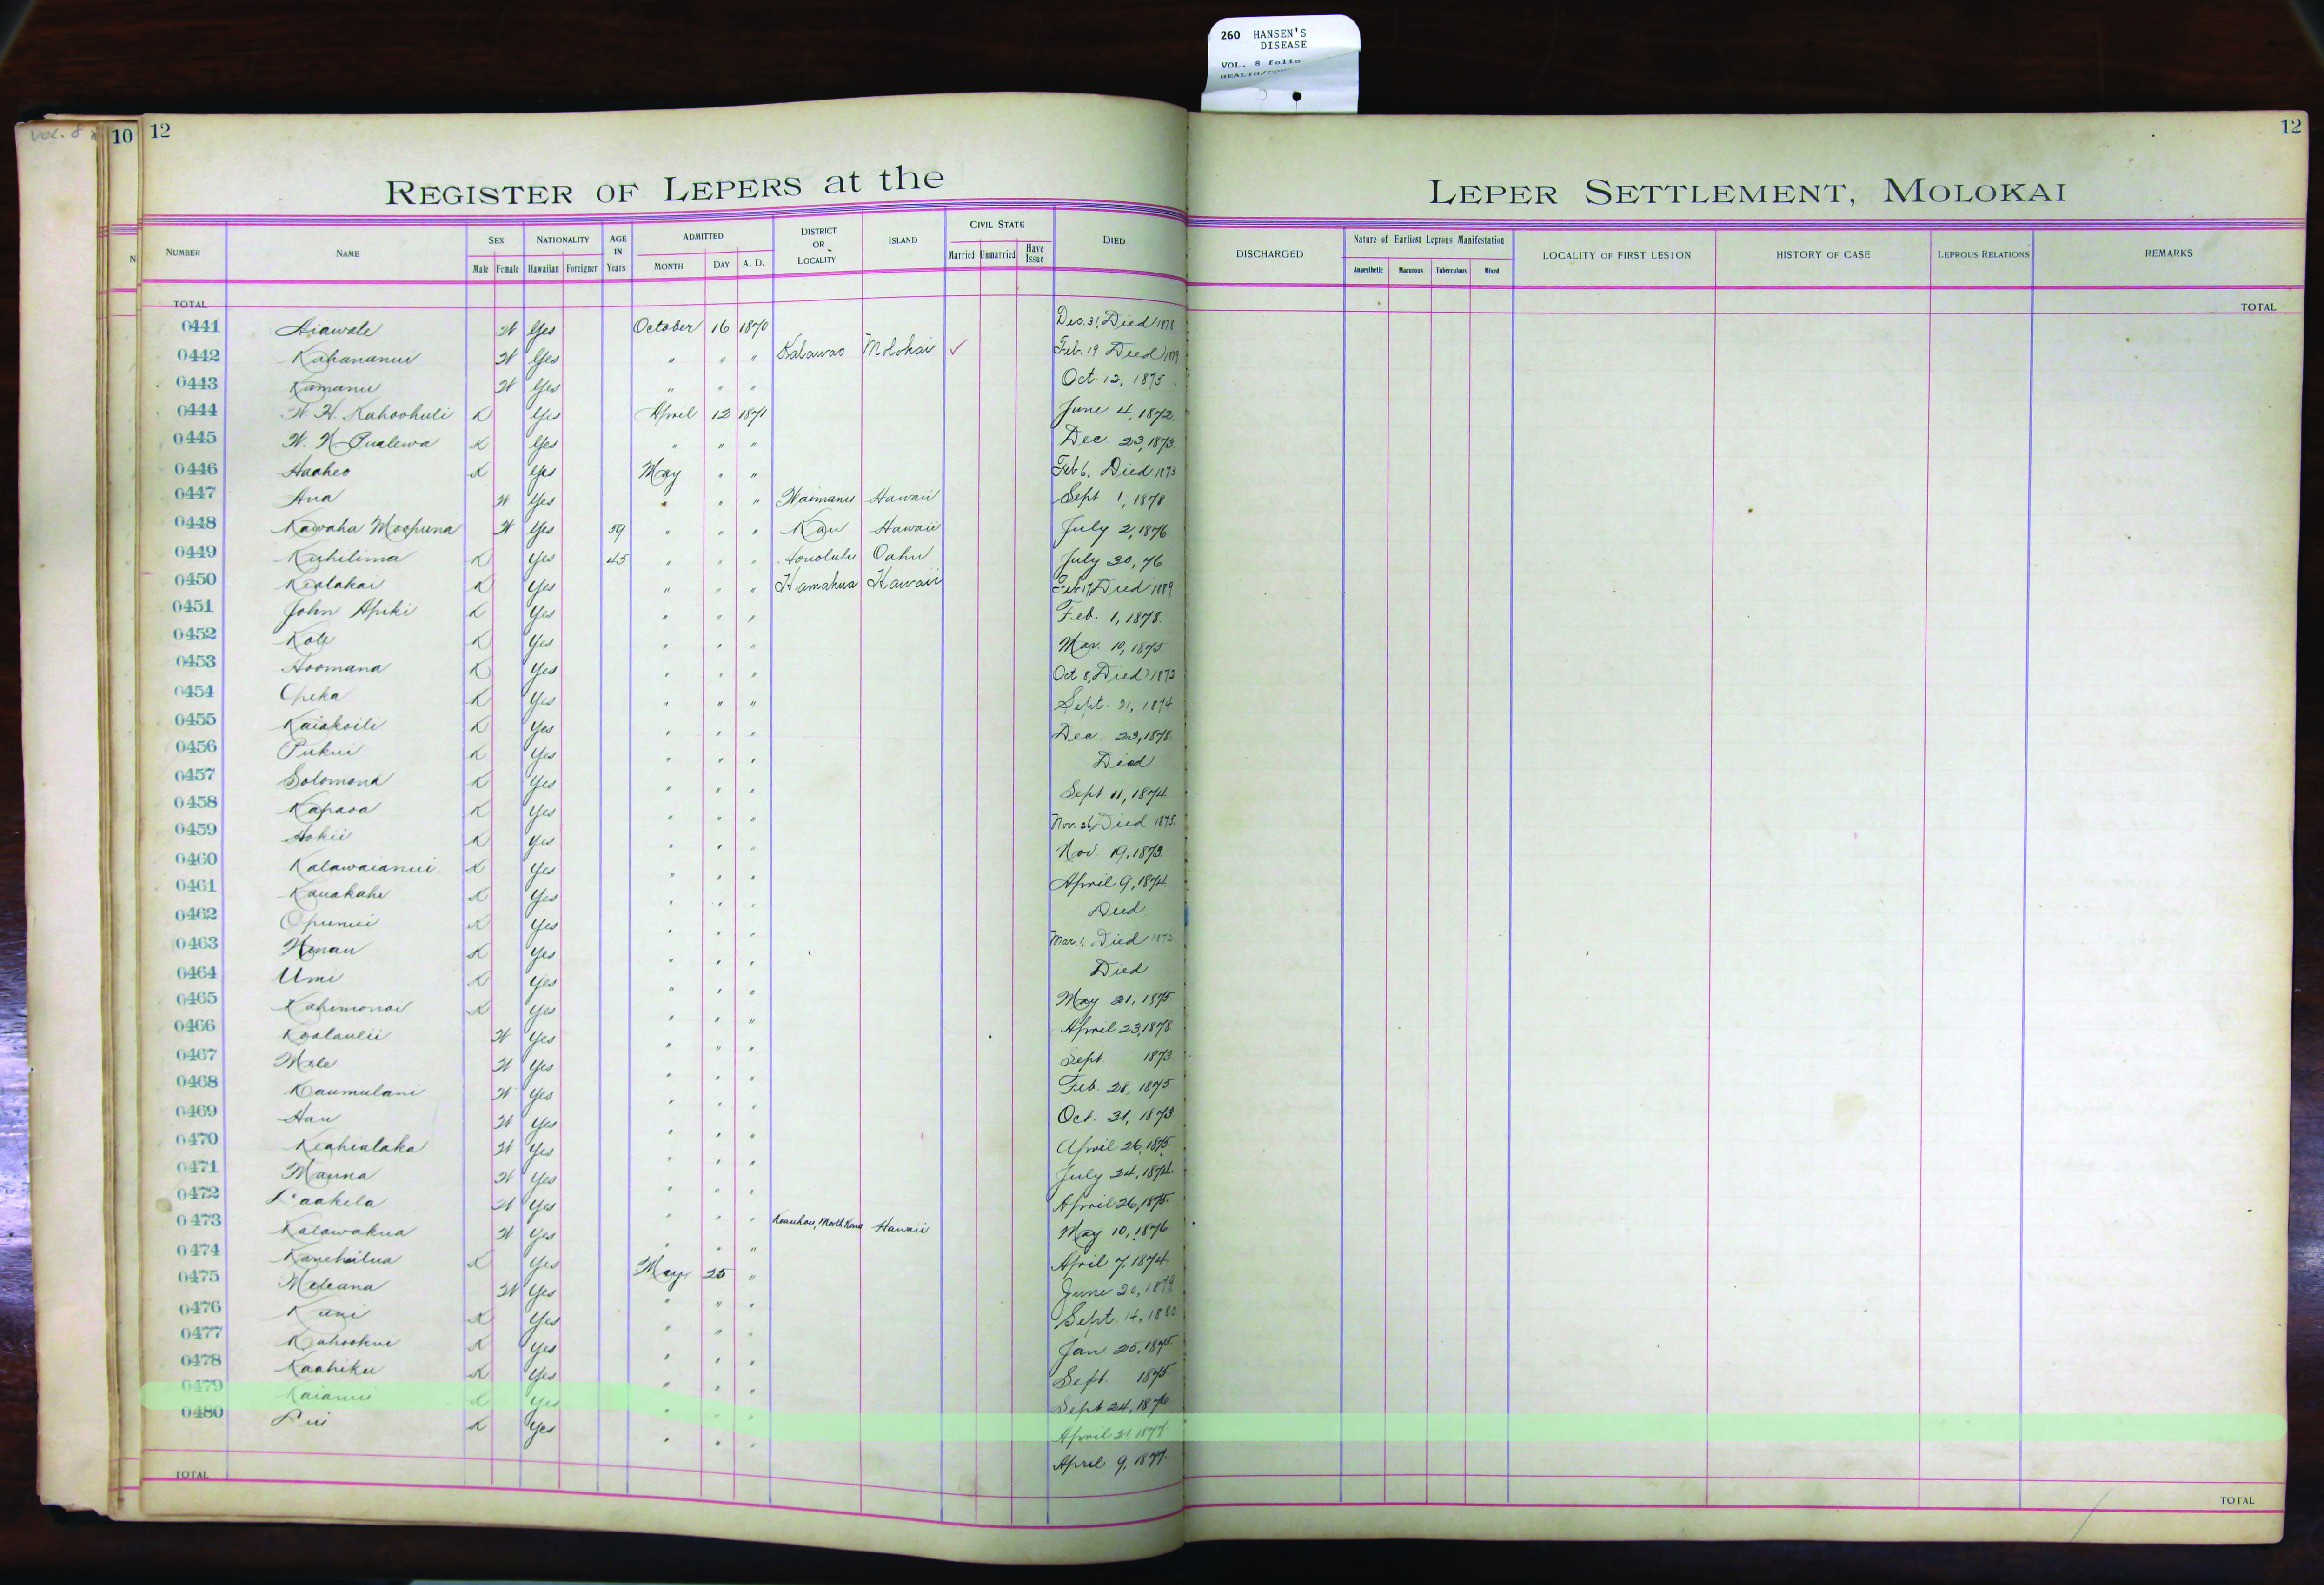 260 HANSEN'S
DISEASE
VOL. 8 folio
10 12
12
REGISTER OF LEPERS at the LEPER SETTLEMENT, MOLOKAI
NUMBER NAME SEX Male Female NATIONALITY Hawaiian Foreigner AGE IN Years ADMITTED MONTH DAY A. D. DISTRICT OR LOCALITY ISLAND CIVIL STATE Married Unmarried Have Issue DIED DISCHARGED Nature of Earliest Leprous Manifestation Anaesthetic Macurous Tuberculous Mixed LOCALITY OF FIRST LESION HISTORY OF CASE LEPROUS RELATIONS REMARKS
TOTAL TOTAL
0441 Aiawale W Yes October 16 1870 Dec. 31, Died 1878
0442 Kahananui W Yes " " " Kalawao Molokai ✓ Feb. 19 Died
0443 Kamanu W Yes " " " Oct. 12, 1875
0444 W. H. Kahoohuli K Yes April 12 1871 June 4, 1872
0445 W. N. Pualewa K Yes " " " Dec. 23, 1873
0446 Haaheo K Yes May " " Feb 6, Died 1873
0447 Ana W Yes " " " Waimanu Hawaii Sept 1, 1878
0448 Kawaha Moopuna W Yes 59 " " " Kau Hawaii July 2, 1876
0449 Kuhilima K Yes 45 " " " Honolulu Oahu July 30, 76
0450 Kealakai K Yes " " " Hamakua Hawaii Feb 17, Died 1889
0451 John Apiki K Yes " " " Feb. 1, 1878
0452 Kole K Yes " " " Mar. 10, 1875
0453 Hoomana K Yes " " " Oct 8, Died 1873
0454 Opeka K Yes " " " Sept. 21, 1874
0455 Kaiakoili K Yes " " " Dec. 23, 1878
0456 Pukui K Yes " " " Died
0457 Solomona K Yes " " " Sept 11, 1874
0458 Kapaoa K Yes " " " Nov. 26, Died 1875
0459 Hokii K Yes " " " Nov. 19, 1873
0460 Kalawaianui K Yes " " " April 9, 1874
0461 Kauakahi K Yes " " " Died
0462 Opunui K Yes " " " Mar. 1, Died
0463 Hinau K Yes " " " Died
0464 Umi K Yes " " " May 21, 1875
0465 Kahimonoi K Yes " " " April 23, 1878
0466 Koolaulii W Yes " " " Sept 1873
0467 Mele W Yes " " " Feb. 28, 1875
0468 Kaumulani W Yes " " " Oct. 31, 1873
0469 Hau W Yes " " " April 26, 1875
0470 Keahialaka W Yes " " " July 24, 1874
0471 Mauna W Yes " " " April 26, 1875
0472 Laakela W Yes " " " Keauhou, North Kona Hawaii May 10, 1876
0473 Kalawakua W Yes " " " April 7, 1874
0474 Kanehailua K Yes May 25 " June 20, 1879
0475 Meleana W Yes " " " Sept. 14, 1880
0476 Kuni K Yes " " " Jan. 25, 1875
0477 Kahookui K Yes " " " Sept. 1875
0478 Kaahiku K Yes " " " Sept 24, 1876
0479 Kaianui K Yes " " " April 21, 1877
0480 Lui K Yes " " " April 9, 1877
TOTAL TOTAL